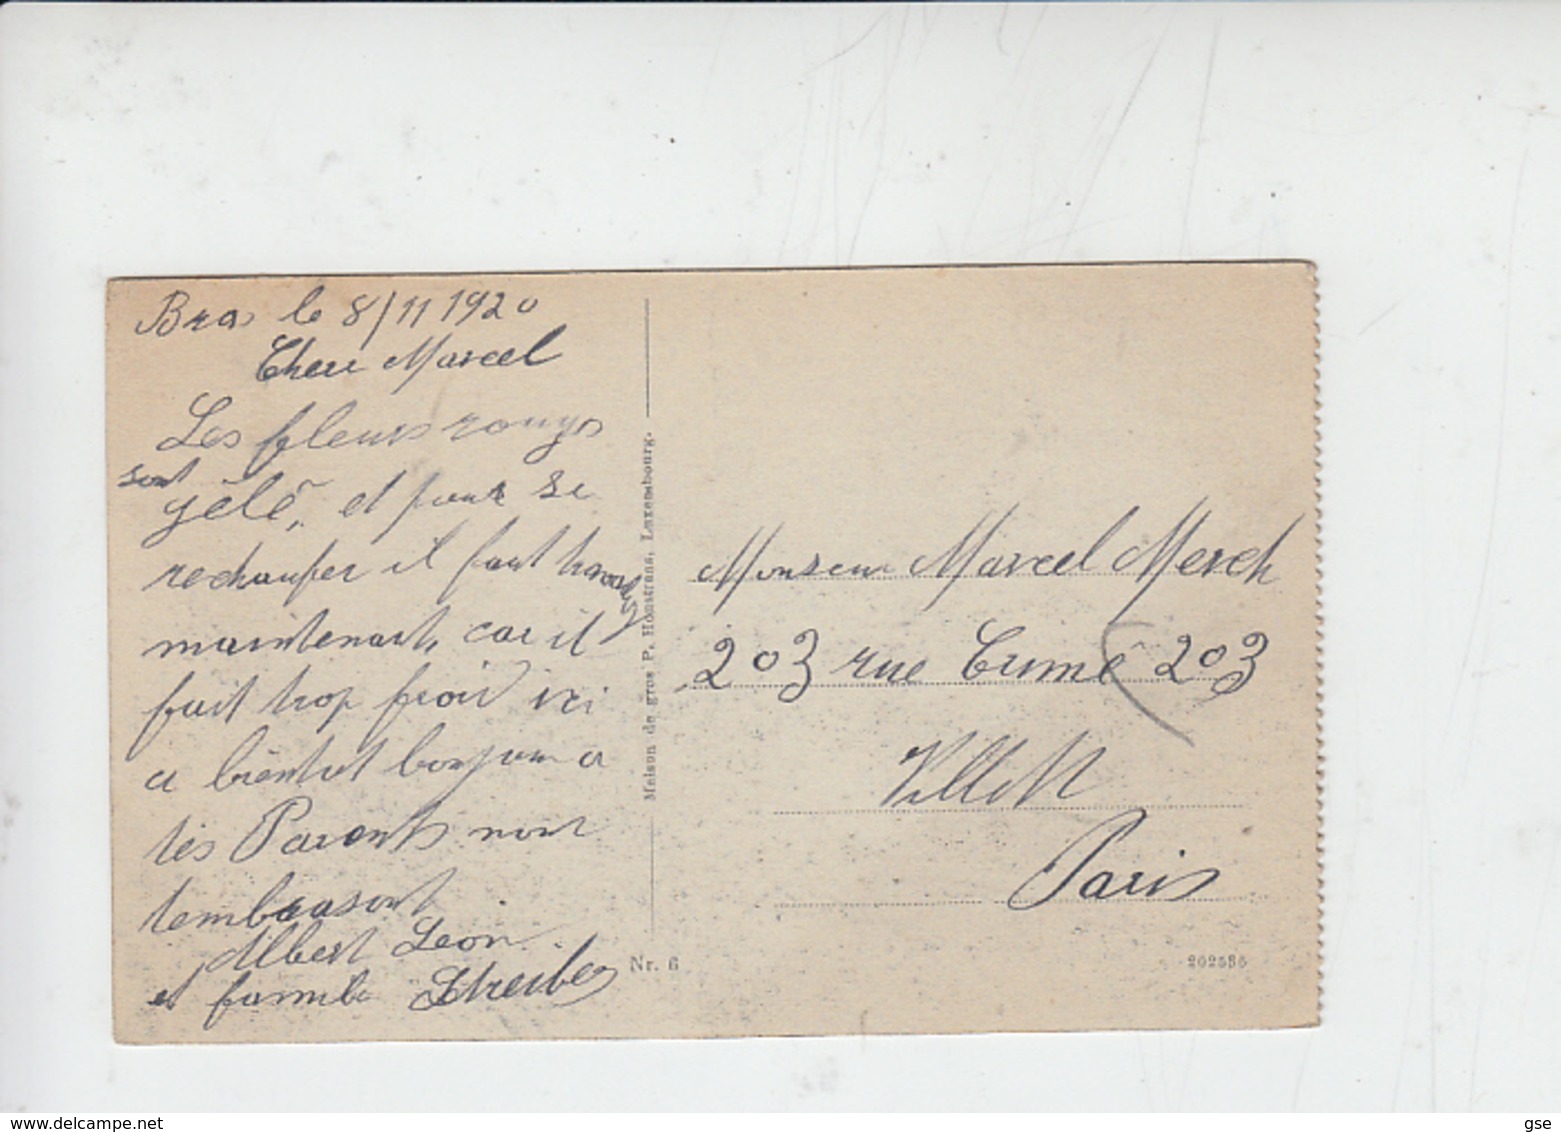 Bras le 8/11 1920
Chere Marcel
Les fleurs rouges
sont
gêlê, et pour se
rechaufer il faut travailler
maintenant, car il
fait trop froid ici
a bientot bonjour a
tes Parents nous
tembrasont
Albert Leon
et famile Streiber
Maison de gros P. Houstrass, Luxembourg.
Nr. 6
Monsieur Marcel Merch
203 rue Crimé 203
Paris
202585
delcampe.net
gse